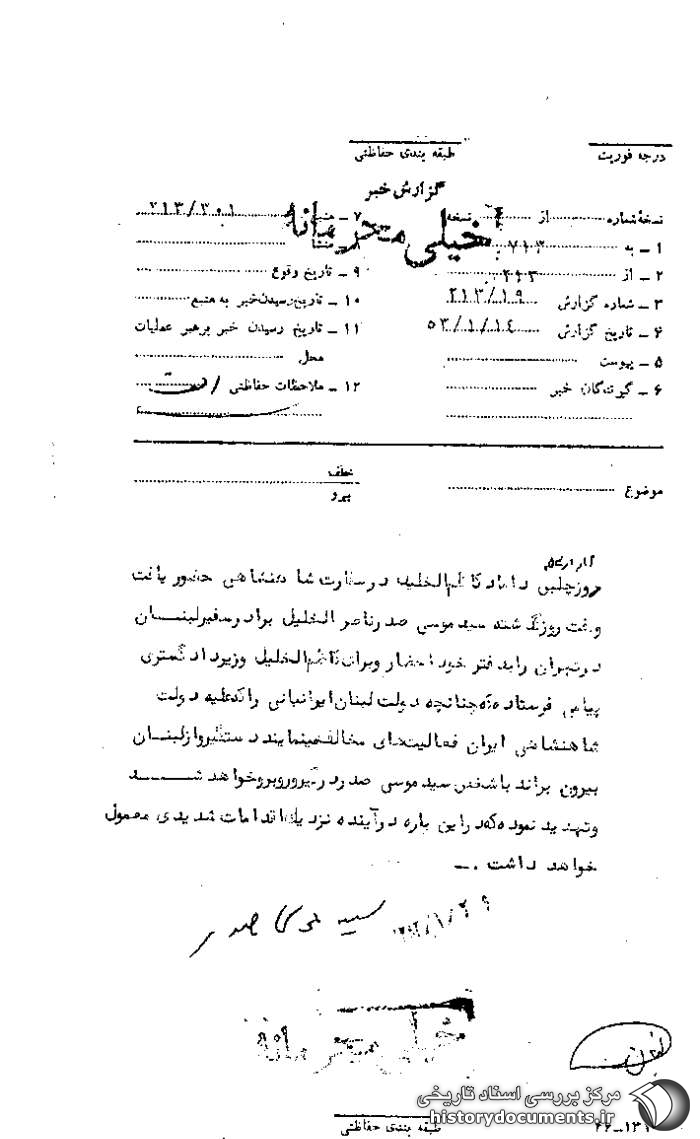 درجه فوریت
طبقه بندی حفاظتی
گزارش خبر
خیلی محرمانه
نسخهٔ شماره از نسخه
۱ ـ به ۷۱۳
۲ ـ از ۲۱۳
۳ ـ شماره گزارش ۲۱۳/۱۹
۴ ـ تاریخ گزارش ۵۳/۱/۱۴
۵ ـ پیوست
۶ ـ گیرندگان خبر
۷ ـ منبع ۲۱۳/۳۰۱
منشأ
۹ ـ تاریخ وقوع
۱۰ ـ تاریخ رسیدن خبر به منبع
۱۱ ـ تاریخ رسیدن خبر برهبر عملیات
محل
۱۲ ـ ملاحظات حفاظتی
موضوع
عطف
پیرو
روز چلبی داماد کاظم الخلیل در سفارت شاهنشاهی حضور یافت
وگفت روز گذشته سید موسی صدر ناصر الخلیل برادر سفیر لبنـــان
در تهران را بدفتر خود احضار و برای کاظم الخلیل وزیر دادگستری
پیامی فرستاده که چنانچه دولت لبنان ایرانیانی را که علیه دولت
شاهنشاهی ایران فعالیتهای مخالف مینمایند دستگیر و از لبنـــان
بیرون براند با شخص سید موسی صدر درگیر و روبرو خواهد شـــــد
و تهدید نموده که در این باره در آینده نزدیک اقدامات شدیدی معمول
خواهد داشت . ـ
سید موسی صدر
خیلی محرمانه
طبقه بندی حفاظتی
مرکز بررسی اسناد تاریخی
historydocuments.ir